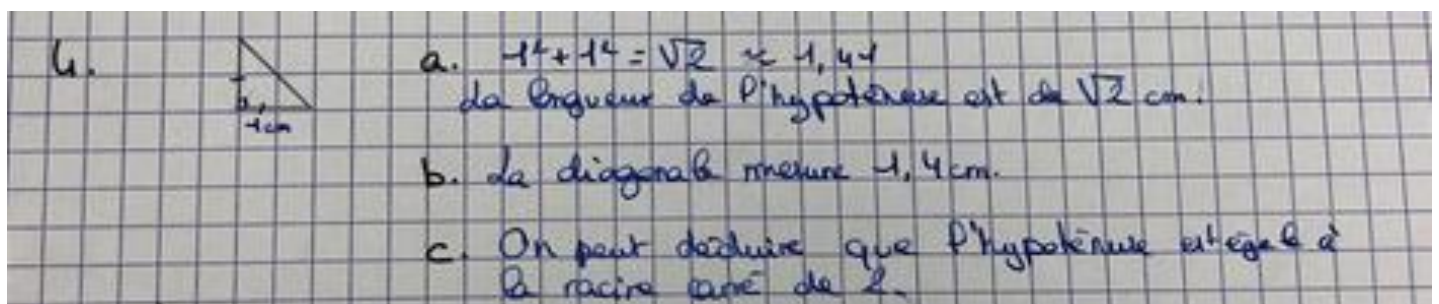 4.
1 cm
a. 1² + 1² = √2 ≈ 1,41
La longueur de l'hypoténuse est de √2 cm.
b. La diagonale mesure 1,4 cm.
c. On peut déduire que l'hypoténuse est égale à
la racine carré de 2.